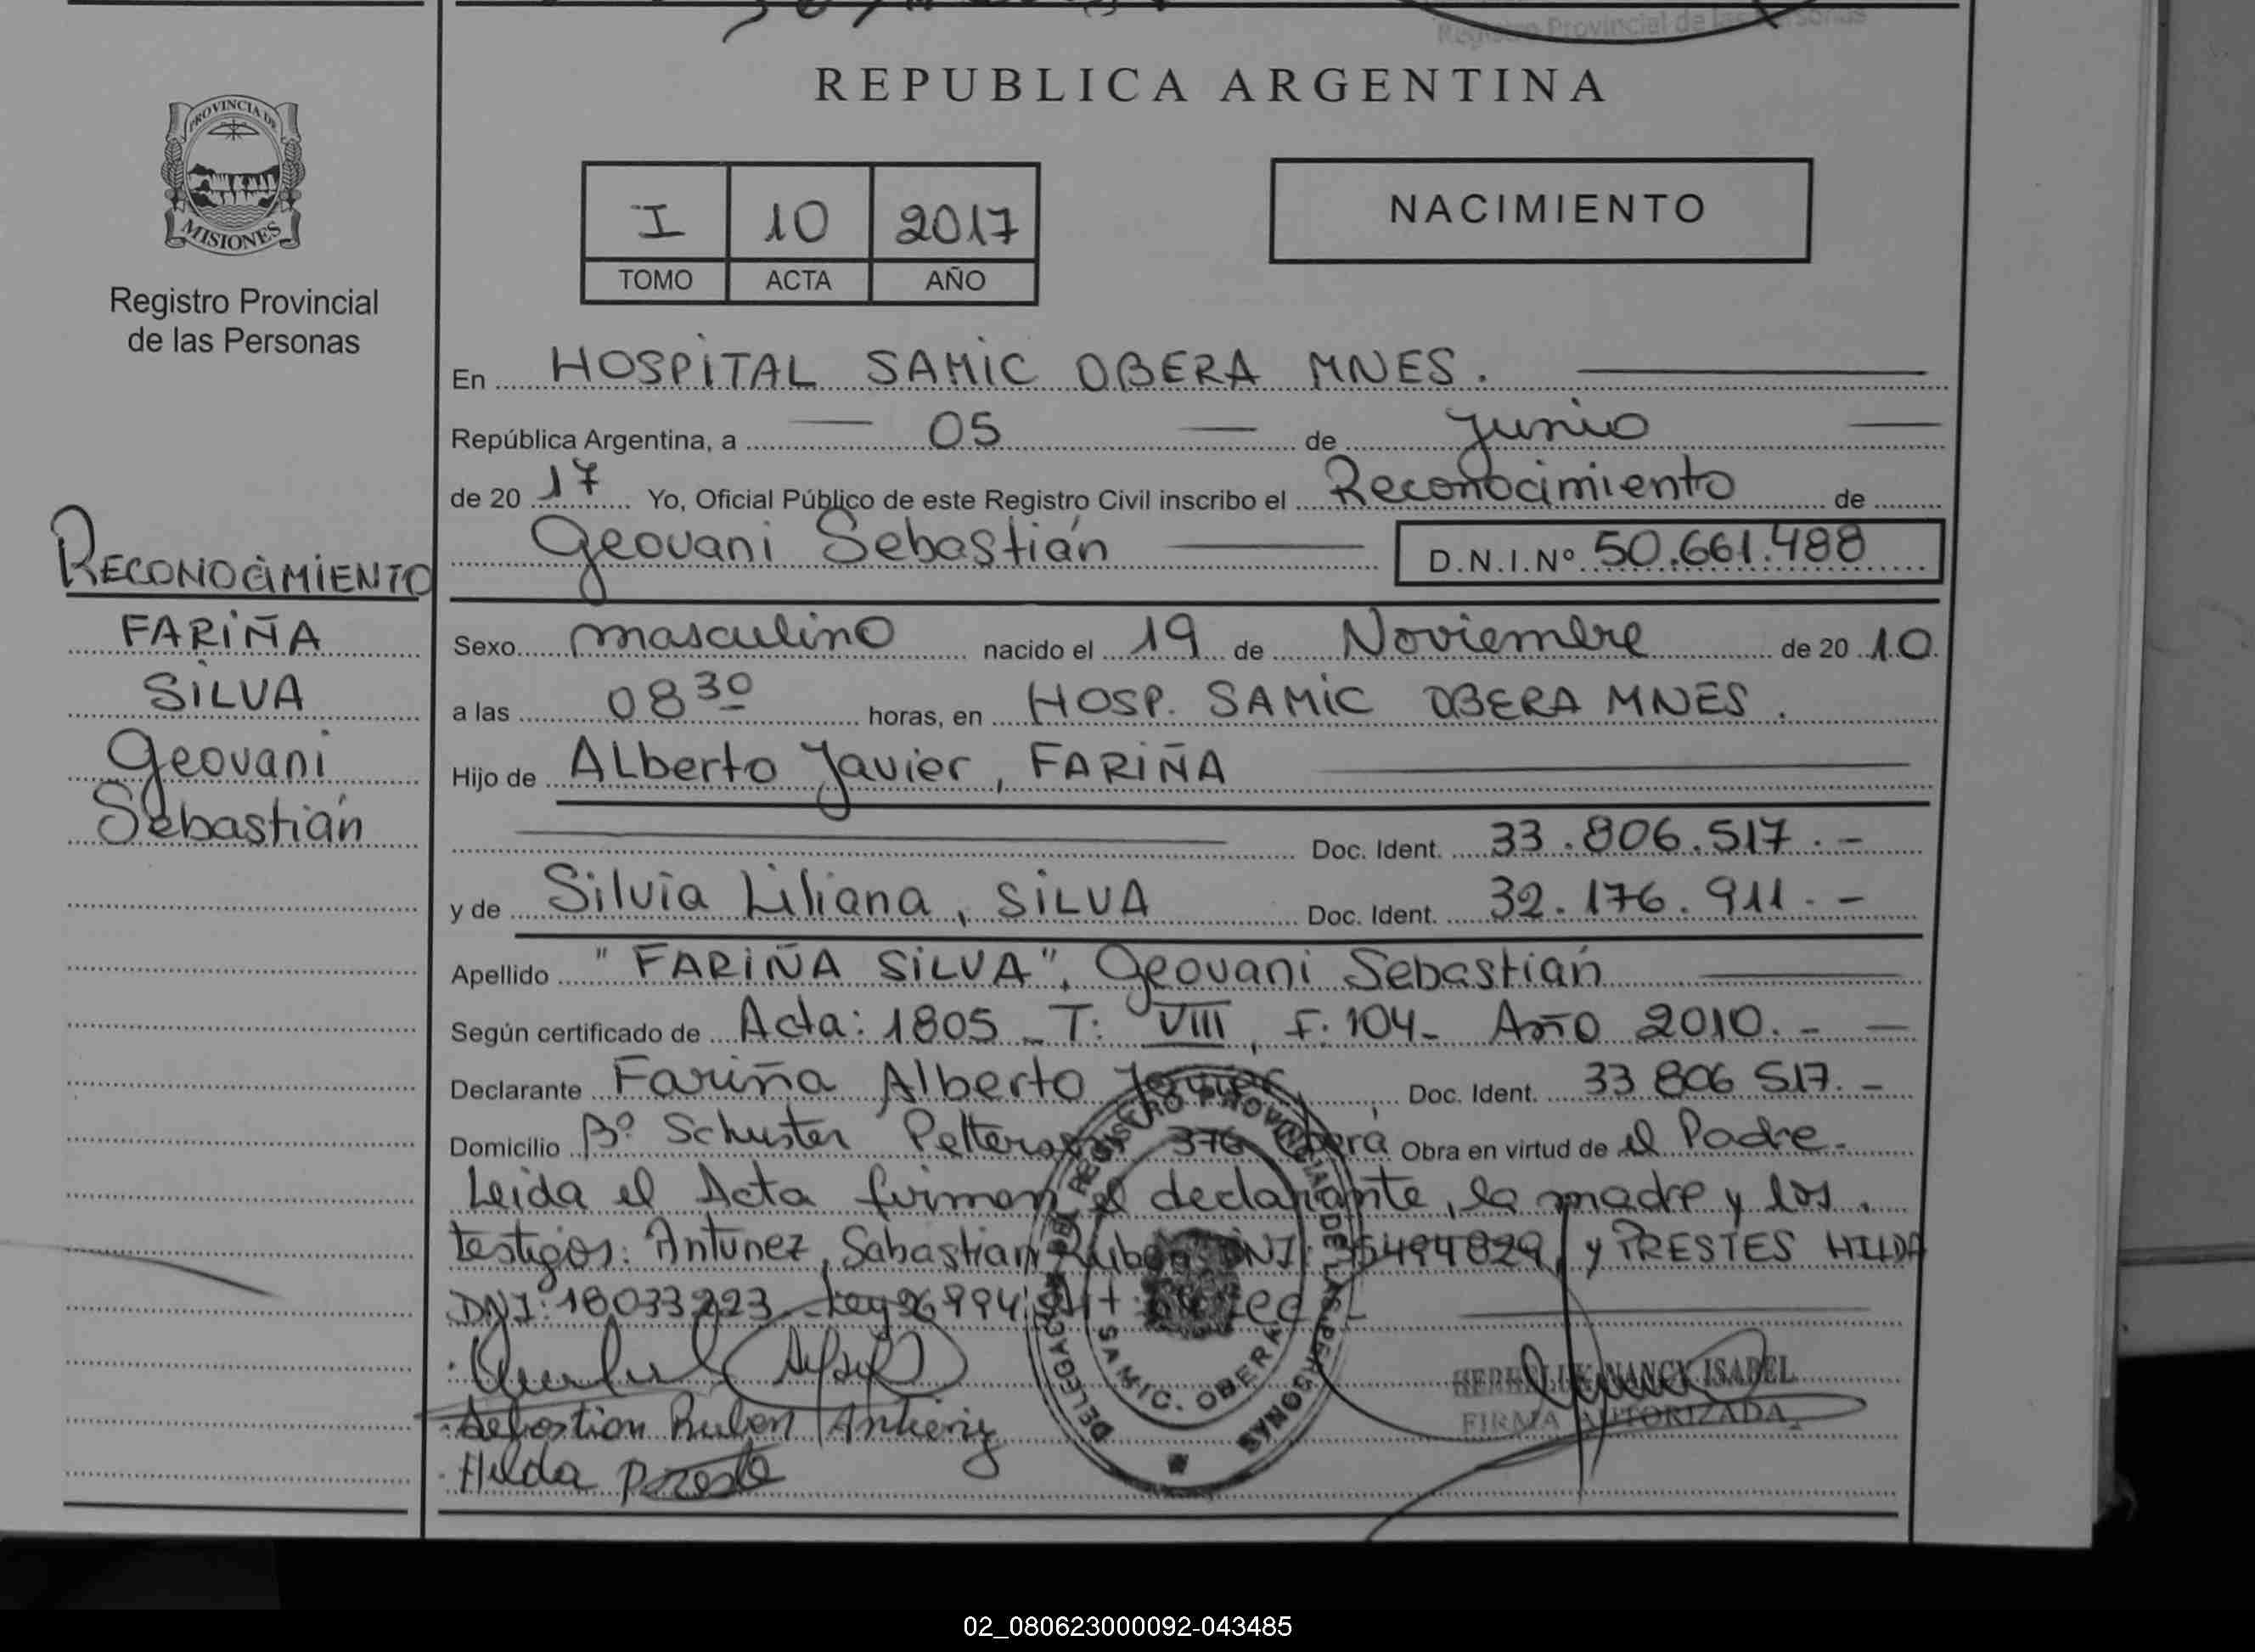 Registro Provincial de las Personas
REPUBLICA ARGENTINA
PROVINCIA DE
MISIONES
Registro Provincial
de las Personas
I 10 2017
TOMO ACTA AÑO
NACIMIENTO
En HOSPITAL SAMIC OBERA MNES.
República Argentina, a 05 de Junio
de 20 17 Yo, Oficial Público de este Registro Civil inscribo el Reconocimiento de
Geovani Sebastián D.N.I.Nº 50.661.488
RECONOCIMIENTO
FARIÑA
SILVA
Geovani
Sebastián
Sexo masculino nacido el 19 de Noviembre de 20 10
a las 08 30 horas, en HOSP. SAMIC OBERA MNES.
Hijo de Alberto Javier, FARIÑA
Doc. Ident. 33.806.517.-
y de Silvia Liliana, SILVA Doc. Ident. 32.176.911.-
Apellido "FARIÑA SILVA", Geovani Sebastián
Según certificado de Acta: 1805 _ T: VIII, F: 104- Año 2010.-
Declarante Fariña Alberto Javier, Doc. Ident. 33 806 517.-
Domicilio Bº Schuster 376 Oberá Obra en virtud de el Padre.
Leida el Acta firman el declarante, la madre y los
testigos: Antunez, Sabastian Ruben DNI: 35494829, y PRESTES HILDA
DNI: 18033223 Ley 26994
Sebastian Ruben Antunez
Hilda Preste
DELEGACION REGISTRO PROVINCIAL DE LAS PERSONAS
SAMIC. OBERA
NANCY ISABEL
FIRMA AUTORIZADA
02_080623000092-043485